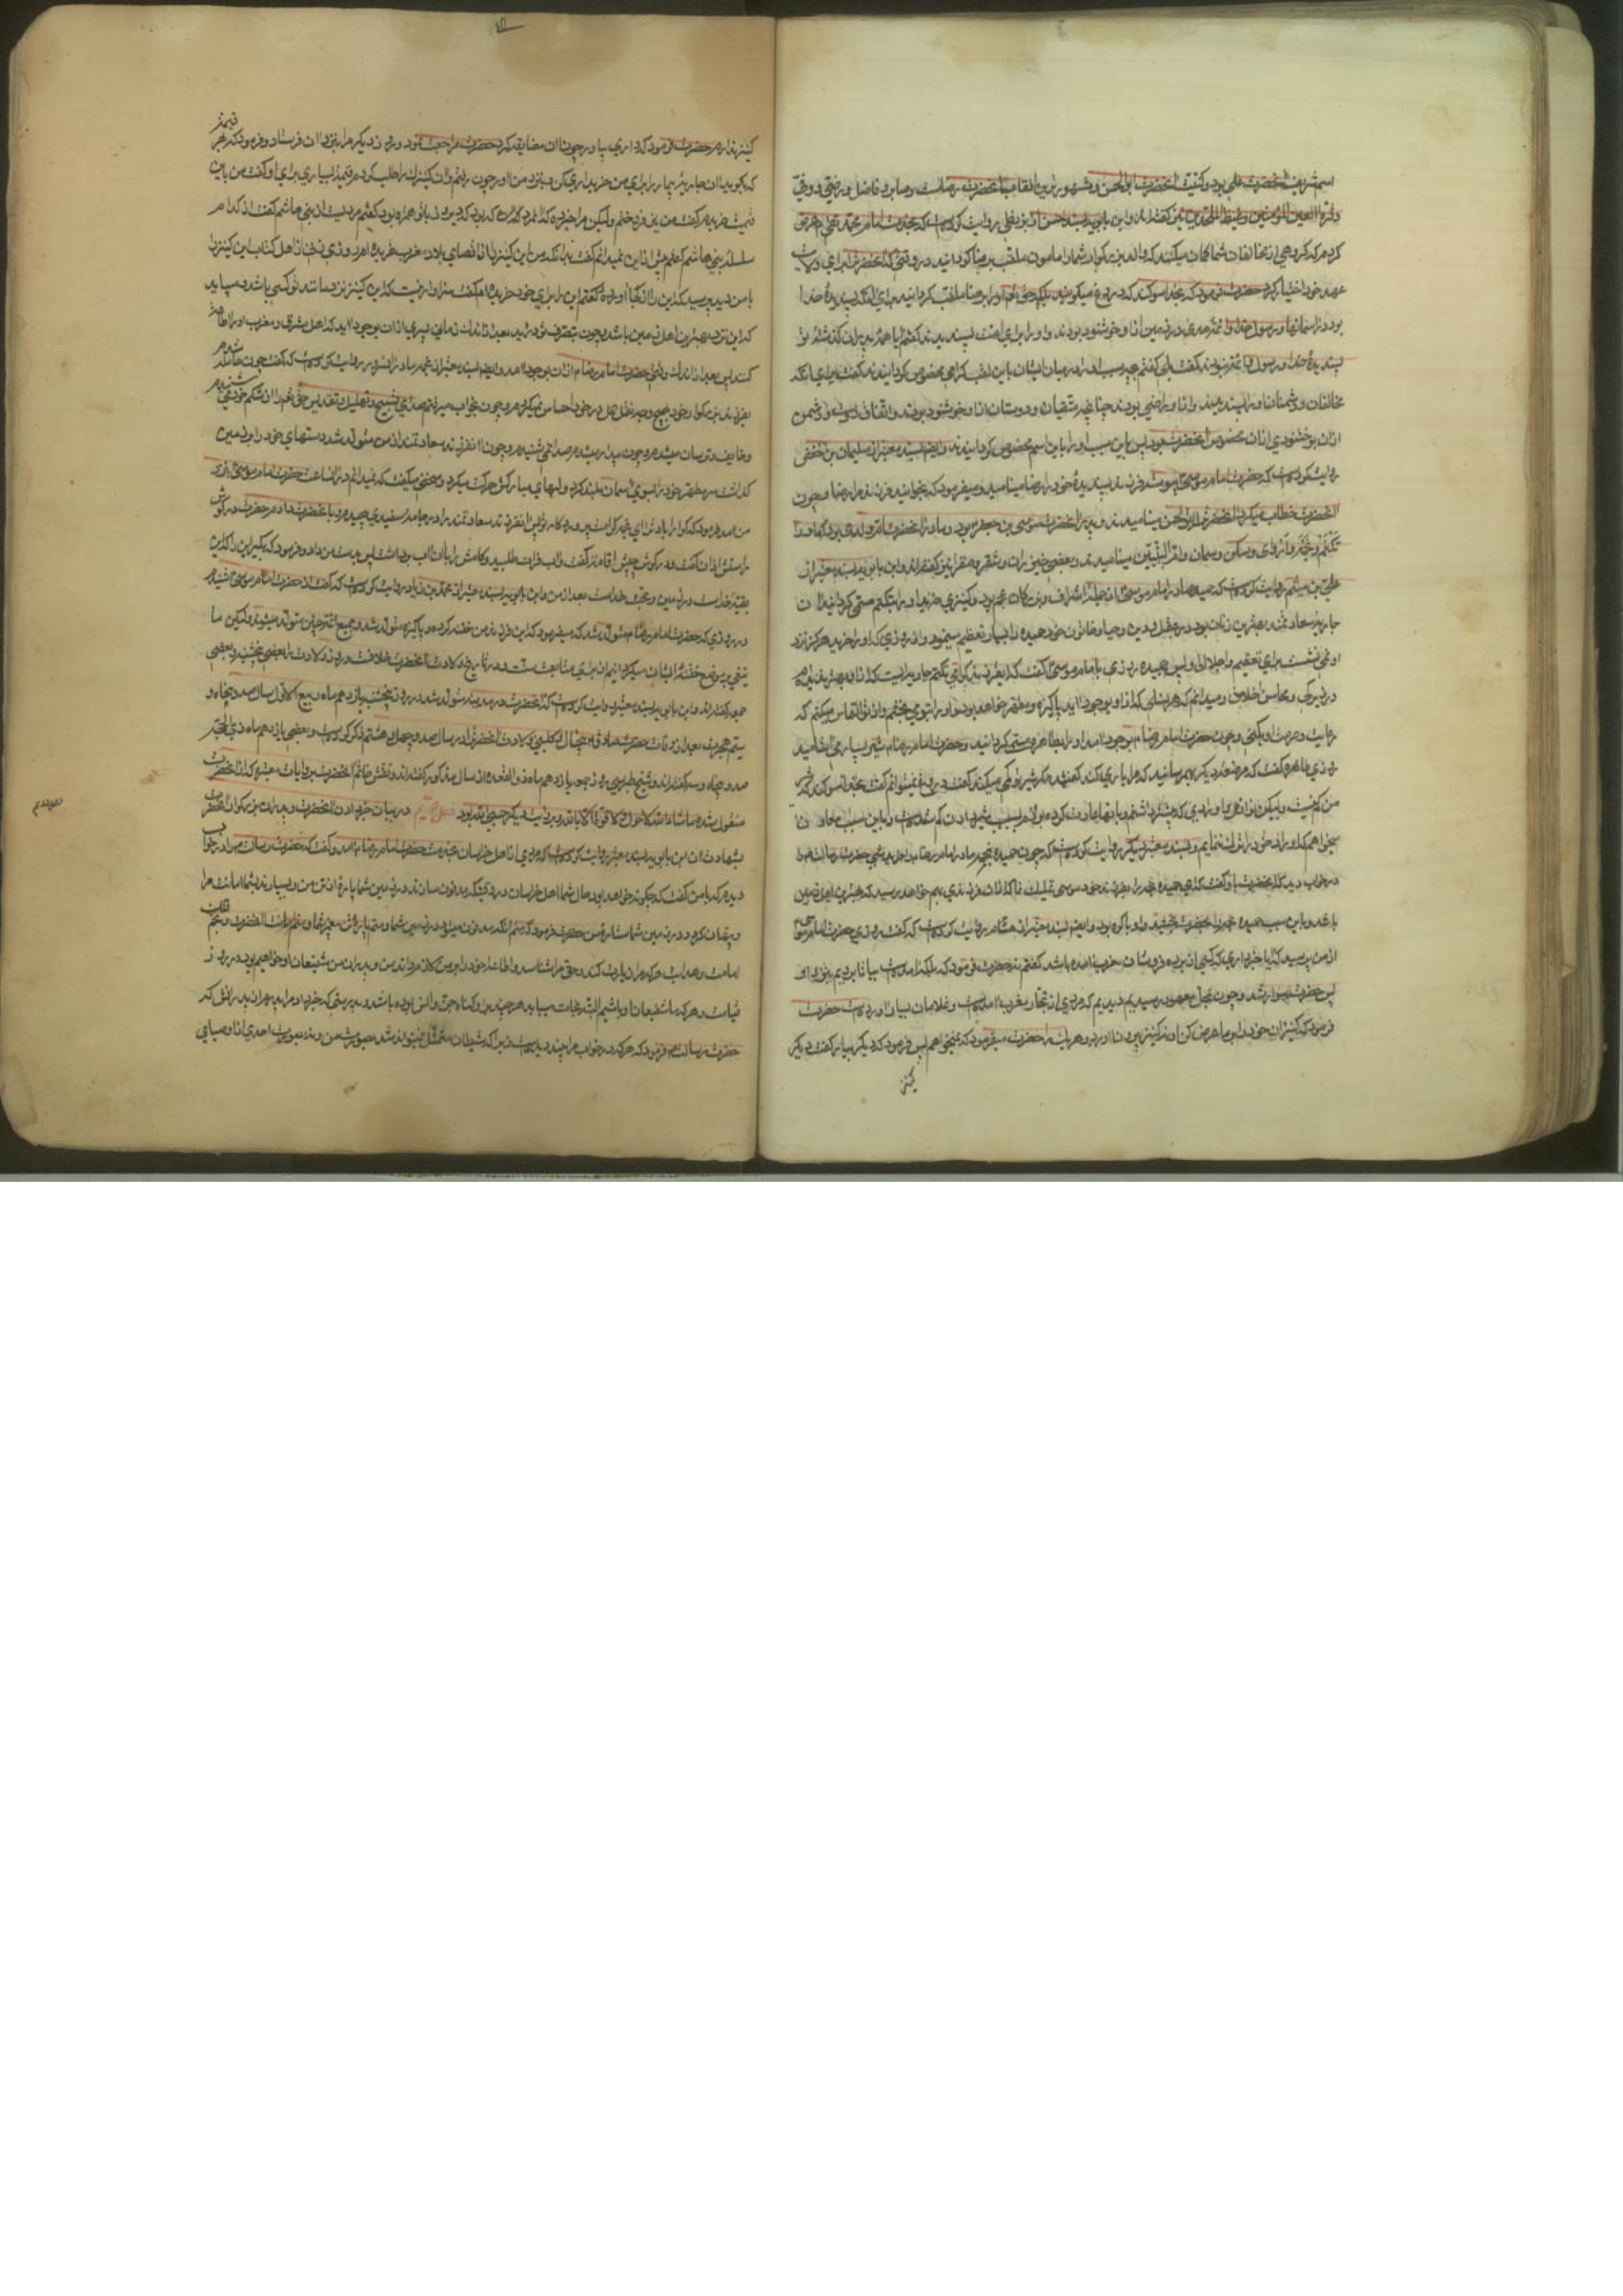 اسم شریف آنحضرت علی بود و کنیت آنحضرت ابوالحسن و مشهورترین القاب آنحضرت رضاست و صابر و فاضل و رضی و وفی
و قرة اعین المؤمنین و غیظ الملحدین نیز گفته‌اند و ابن بابویه بسند حسن از بزنطی روایت کرده است که بخدمت امام محمد تقی عرض
کردم که گروهی از مخالفان شما گمان میکنند که والد بزرگوار شما را مامون ملقب برضا گردانید در وقتی که آنحضرت را برای ولایت
عهد خود اختیار کرد حضرت فرمود که بخدا سوگند که دروغ میگویند بلکه حق تعالی او را برضا ملقب گردانید برای آنکه پسندیده خدا
بود در آسمانها و رسول خدا و ائمه هدی در زمین از او خوشنود بودند و او را برای امامت پسندیدند گفتم آیا همه پدران گذشته تو
پسندیده خدا و رسول و ائمه نبودند گفت بلی گفتم بچه سبب او را در میان ایشان باین لقب گرامی مخصوص گردانیدند گفت برای آنکه
مخالفان و دشمنان او را پسندیدند و از او راضی بودند چنانچه متقیان و دوستان از او خوشنود بودند و اتفاق دوست و دشمن
از آن بر خشنودی از آن مخصوص آنحضرت بود پس باین سبب او را باین اسم مخصوص گردانیدند و ایضا بسند معتبر از سلیمان بن حفص
روایت کرده است که حضرت امام موسی پیوسته فرزند پسندیده خود را رضا مینامید و میفرمود که بخوانید فرزندم را رضا و چون
آنحضرت خطاب میکرد آنحضرت را ابوالحسن مینامید پدر آنحضرت موسی بن جعفر بود و مادر آنحضرت ام ولدی بود که او را
تکتم و نجمه و اروی و سکن و سمان و ام البنین مینامیدند و بعضی خیزران و شقرا نیز گفته‌اند و ابن بابویه بسند معتبر از
علی بن میثم روایت کرده است که حمیده مادر امام موسی از جمله اشراف و بزرگان عجم بود و کنیزی خرید و او را بتکتم مسمی گردانید آن
جاریه سعادتمند بهترین زنان بود در عقل و دین و حیا و خاتون خود حمیده را بسیار تعظیم مینمود و از روزی که او را خرید هرگز نزد
او نمی نشست برای تعظیم و اجلال او پس حمیده روزی با امام موسی گفت که ای فرزند گرامی تکتم جاریه ایست که از او بهتر ندیده‌ام
در زیرکی و محاسن اخلاق و میدانم که هر نسلی که از او بوجود آید پاکیزه و مطهر خواهد بود او را بتو می بخشم و از تو التماس میکنم که
رعایت حرمت او بکنی و چون حضرت امام رضا بوجود آمد او را بطاهره مسمی گردانید و حضرت امام رضا شیر بسیار می آشامید
روزی طاهره گفت که مرضعه دیگر بهم رسانید که مرا یاری کند گفتند مگر شیر تو کمی میکند گفت دروغ نمیتوانم گفت بخدا سوگند که شیر
من کم نیست و لیکن نوافل و اورادی که پیشتر داشتم و بآنها عادت کرده بودم بسبب شیر دادن کم شده است و باین سبب معاون
میخواهم که اوراد خود را ترک ننمایم و بسند معتبر دیگر روایت کرده است که چون حمیده نجمه مادر امام رضا را خرید شبی حضرت رسالت را
در خواب دید که آنحضرت باو گفت که ای حمیده نجمه را بفرزند خود موسی تملیک نما که از او فرزندی بهم خواهد رسید که بهترین اهل زمین
باشد و باین سبب حمیده نجمه را بحضرت بخشید و او باکره بود و ایضا بسند معتبر از هشام روایت کرده است که گفت روزی حضرت امام موسی
از من پرسید که آیا خبر داری که کسی از برده فروشان مغرب آمده باشد گفتم نه حضرت فرمود که بلکه آمده است بیا تا برویم بنزد او
پس حضرت سوار شد و چون بمحل معهود رسیدیم دیدیم که مردی از تجار مغرب آمده است و غلامان بسیار آورده است حضرت
فرمود که کنیزان خود را بر ما عرض کن او نه کنیز بیرون آورد و هر یک را حضرت میفرمود که نمیخواهم پس فرمود که دیگر بیاور گفت دیگر
کنیز
کنیز ندارم حضرت فرمود که داری بیاور چون او مضایقه کرد حضرت مراجعت نمود و روز دیگر مرا بنزد او فرستاد و فرمود که بهر قیمت
که بگوید آن جاریه بیمار را برای من خریداری کن و بنزد من آور چون رفتم و آن کنیزک را طلب کردم قیمت بسیاری برای او گفت من باین
قیمت خریدم گفت من نیز فروختم ولیکن مرا خبر ده که آن مرد که دیروز با تو همراه بود کیست گفتم مردیست از بنی هاشم گفت از کدام
سلسله بنی هاشم گفتم بیش از این نمیدانم گفت بدانکه من این کنیز را از اقصای بلاد مغرب خریده‌ام روزی زنی از اهل کتاب این کنیز را
با من دید پرسید که این را از کجا آورده گفتم این را برای خود خریده‌ام گفت سزاوار نیست که این کنیز نزد مانند تو کسی باشد و میباید
که این نزد بهترین اهل زمین باشد و چون بتصرف او درآید بعد از اندک زمانی پسری از او بوجود آید که اهل مشرق و مغرب او را اطاعت
کنند پس بعد از اندک وقتی حضرت امام رضا از او بوجود آمد و ایضا بسند معتبر از نجمه مادر آنسرور روایت کرده است که گفت چون حامله شدم
بفرزند بزرگوار خود بهیچ وجه ثقل حمل در خود احساس نمیکردم و چون بخواب میرفتم صدای تسبیح و تهلیل و تقدیس حق تعالی از شکم خود می شنیدم
و خایف و ترسان میشدم و چون بیدار میشدم صدائی نمی شنیدم و چون آن فرزند سعادتمند از من متولد شد دستهای خود را بر زمین
گذاشت و سر مطهر خود را بسوی آسمان بلند کرد و لبهای مبارکش حرکت میکرد و سخنی میگفت که نمیدانم در آنساعت حضرت امام موسی نزد
من آمد و فرمود که گوارا باد ترا ای نجمه کرامت پروردگار تو پس آن فرزند سعادتمند را در جامه سفیدی پیچیدم و بآنحضرت دادم حضرت در گوش
راستش اذان گفت و در گوش چپش اقامه گفت و آب فرات طلبید و کامش را بآن آب برداشت پس بدست من داد و فرمود که بگیر این را که این
بقیه خداست در زمین و حجت خداست بعد از من و ابن بابویه بسند معتبر از محمد بن زیاد روایت کرده است که گفت از حضرت امام موسی شنیدم
در روزی که حضرت امام رضا متولد شد که میفرمود که این فرزند من ختنه کرده و پاکیزه متولد شد و جمیع ائمه چنین متولد میشوند ولیکن ما
تیغی بر موضع ختنه ایشان میگردانیم از برای متابعت سنت و در تاریخ ولادت آنحضرت خلافست و روز ولادت را بعضی پنجشنبه و بعضی
جمعه گفته‌اند و ابن بابویه بسند معتبر روایت کرده است که آنحضرت در مدینه متولد شد در روز پنجشنبه یازدهم ماه ربیع الاول سال صد و پنجاه و
سیم هجرت بعد از وفات حضرت صادق به پنج سال و کلینی ولادت آنحضرت را در سال صد و چهل و هشتم ذکر کرده است و بعضی یازدهم ماه ذی الحجه
صد و پنجاه و سه گفته‌اند و شیخ طبرسی روز جمعه یازدهم ماه ذی القعده از سال مذکور گفته‌اند و نقش خاتم آنحضرت بروایات معتبره که از آنحضرت
منقول شده ما شاء الله لا حول و لا قوة الا بالله و بروایت دیگر حسبی الله بود فصل دویم در بیان خبر دادن آنحضرت و پدران بزرگوار آنحضرت
بشهادت او ابن بابویه بسند معتبر روایت کرده است که مردی از اهل خراسان بخدمت حضرت امام رضا آمد و گفت که حضرت رسالت را در خواب
دیدم که با من گفت که چگونه خواهد بود حال شما اهل خراسان در وقتیکه مدفون سازند در زمین شما پاره از تن من و بسپارند بشما امانت مرا
و پنهان گردد در زمین شما ستاره من حضرت فرمود که منم آنکه مدفون میشود در زمین شما و منم پاره تن پیغمبر شما و منم امانت آنحضرت و نجم فلک
امامت و هدایت هر که مرا زیارت کند و حق مرا شناسد و اطاعت مرا بر خود لازم داند من و پدران من شفیعان او خواهیم بود در روز
قیامت و هر که ما شفیعان او باشیم البته نجات میباید هر چند بر او گناه جن و انس بوده باشد بدرستی که خبر داد مرا پدرم از پدرانش که
حضرت رسالت فرمود که هر که در خواب مرا ببیند مرا دیده است زیرا که شیطان متمثل نمیتواند شد بصورت من و نه بصورت احدی از اوصیای